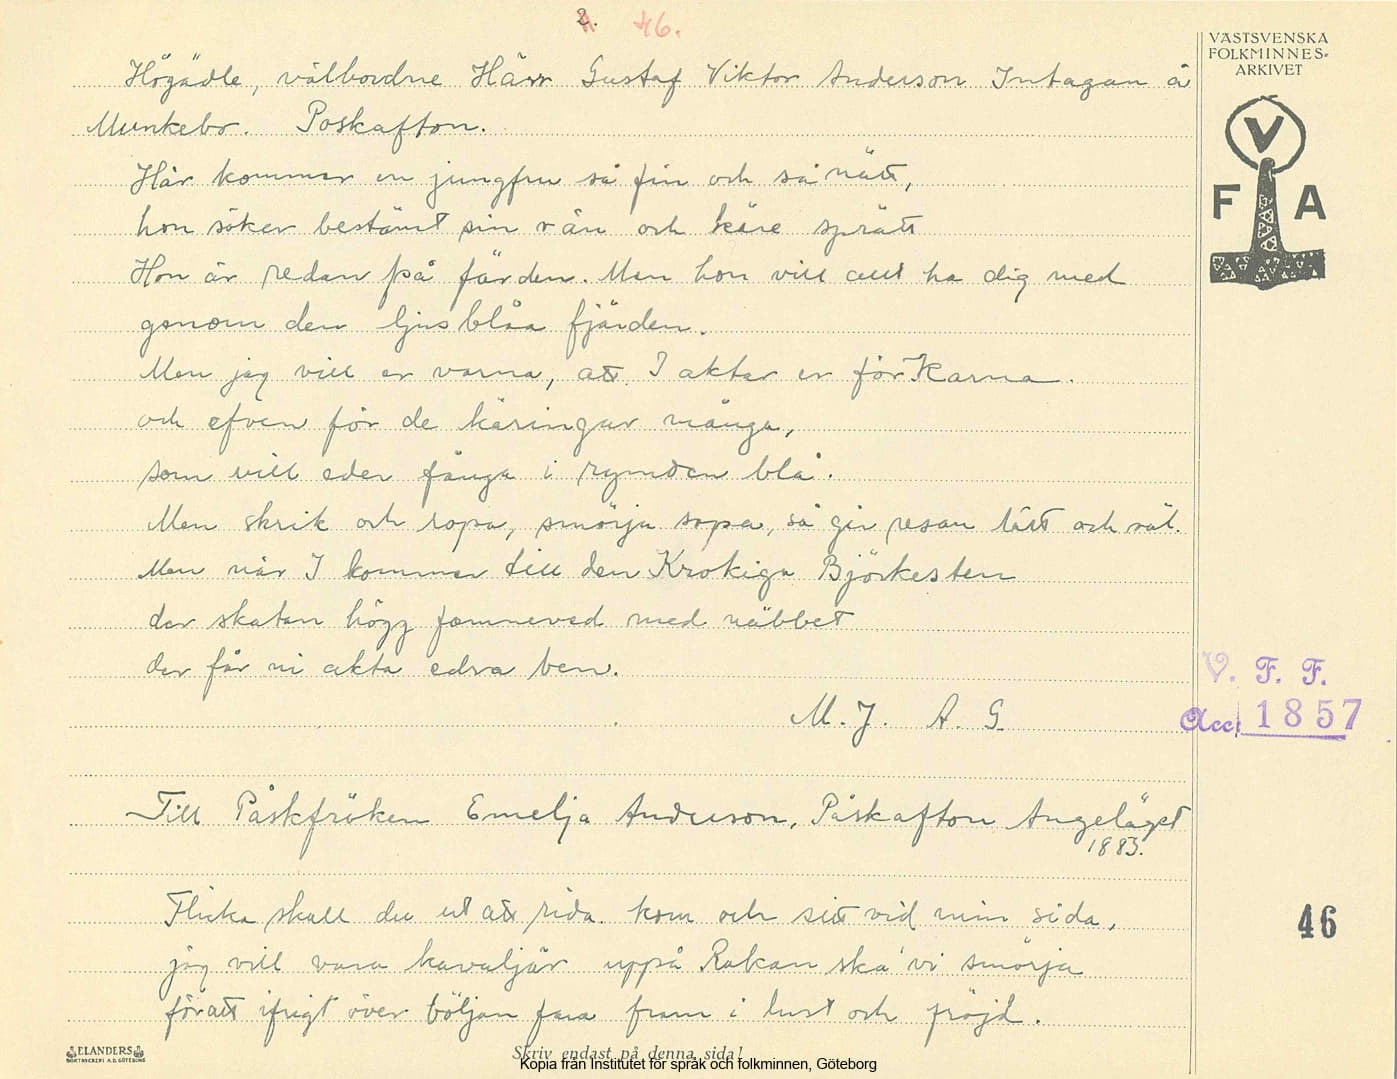 2.
46.
VÄSTSVENSKA
FOLKMINNES-
ARKIVET
V
F A
Högädle, välbordne Härr Gustaf Viktor Anderson Intagan å
Munkebo. Poskafton.
Här kommer en jungfru så fin och så nätt,
hon söker bestämt sin vän och käre sprätt
Hon är redan på färden. Men hon vill allt ha dig med
genom den ljusblåa fjärden.
Men jag vill er varna, att I aktar er för Karna.
och efven för de käringar många,
som vill eder fånga i rymden blå.
Men skrik och ropa, smörja sopa, så gir resan lätt och väl.
Men när I kommer till den Krokiga Björkesten
der skatan högg famneved med näbbet
der får ni akta edra ben.
M. J. A. G.
V. F. F.
Acc: 1857
Till Påskfröken Emelja Anderson, Påskafton Angeläget
1883.
Flicka skall du ut att rida kom och sitt vid min sida,
jag vill vara kavaljär uppå Rakan ska vi smörja
föratt ifrigt över böljan fara fram i lust och fröjd.
46
ELANDERS
BOKTRYCKERI A.B. GÖTEBORG
Skriv endast på denna sida!
Kopia från Institutet för språk och folkminnen, Göteborg